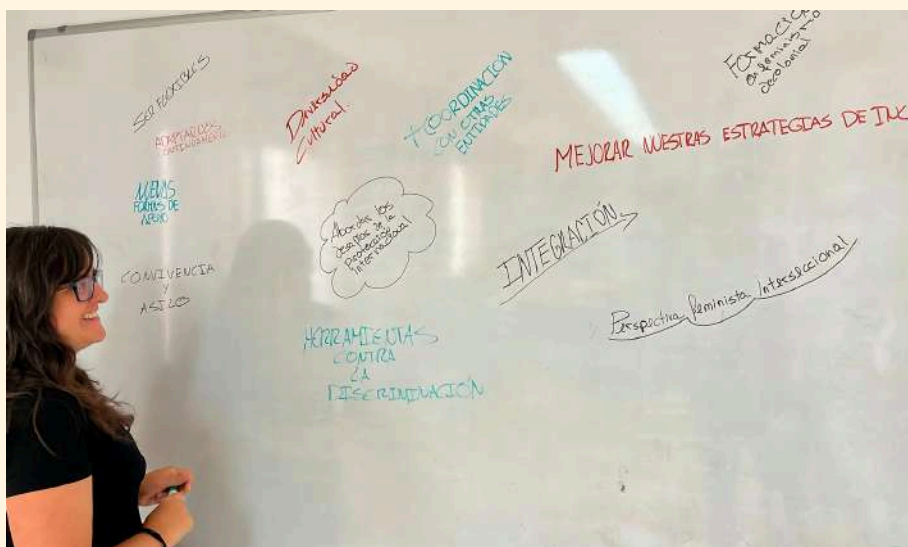 SER FLEXIBLES
ADAPTARNOS
CONTINUAMENTE
NUEVAS
FORMAS DE
APOYO
CONVIVENCIA
Y
ASILO
Diversidad
Cultural.
+ COORDINACIÓN
CON OTRAS
ENTIDADES
Abordar los
desafíos de la
protección
internacional
HERRAMIENTAS
CONTRA
LA
DISCRIMINACIÓN
Formación
en feminismo
decolonial
MEJORAR NUESTRAS ESTRATEGIAS DE INC
INTEGRACIÓN
Perspectiva feminista Interseccional